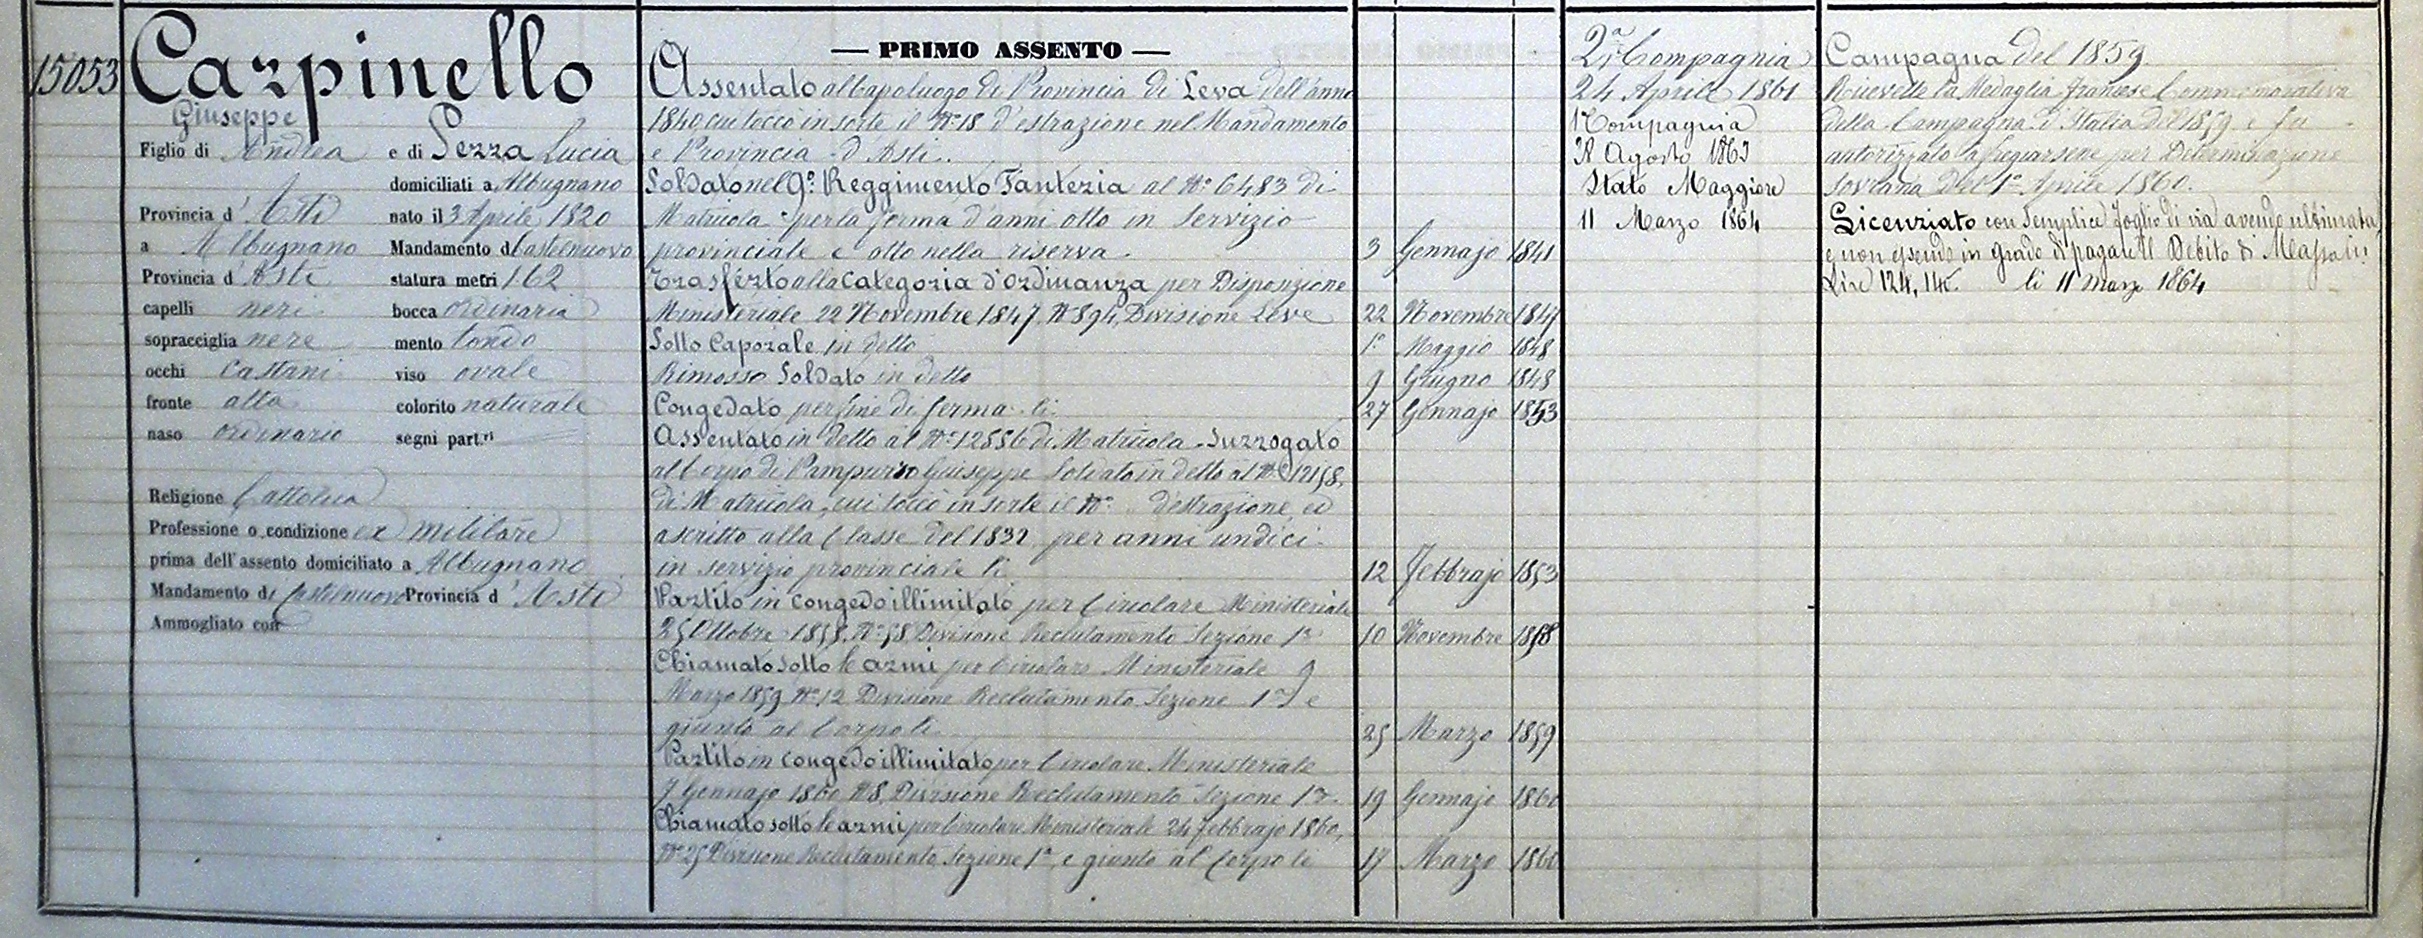 15053
Carpinello
Giuseppe
Figlio di Andrea e di Pezza Lucia
domiciliati a Albugnano
Provincia d'Asti nato il 3 Aprile 1820
a Albugnano Mandamento di Castelnuovo
Provincia d'Asti statura metri 162
capelli neri bocca ordinaria
sopracciglia nere mento tondo
occhi Castani viso ovale
fronte alta colorito naturale
naso ordinario segni part.ri
Religione Cattolica
Professione o condizione ex militare
prima dell'assento domiciliato a Albugnano
Mandamento di Castelnuovo Provincia d'Asti
Ammogliato con
— PRIMO ASSENTO —
Assentato al Capoluogo di Provincia di Leva dell'anno
1840, cui toccò in sorte il N° 18 d'estrazione nel Mandamento
e Provincia d'Asti.
Soldato nel 9° Reggimento Fanteria al N° 6483 di
Matricola per la ferma d'anni otto in servizio
provinciale e otto nella riserva. 3 Gennajo 1841
Trasferto alla Categoria d'Ordinanza per Disposizione
Ministeriale 22 Novembre 1847, N° 894, Divisione Leve 22 Novembre 1847
Sotto Caporale in detto 1° Maggio 1848
Rimosso Soldato in detto 9 Giugno 1848
Congedato per fine di ferma li 27 Gennajo 1853
Assentato in detto al N° 12556 di Matricola Surrogato
al Corpo di Giuseppe Soldato in detto al N° 12158,
di Matricola, cui toccò in sorte il N° d'estrazione, ed
ascritto alla Classe del 1832 per anni undici
in servizio provinciale li 12 Febbrajo 1853
Partito in congedo illimitato per Circolare Ministeriale
25 Ottobre 1858, N° 58 Divisione Reclutamento Sezione 1a 10 Novembre 1858
Chiamato sotto le armi per Circolare Ministeriale 9
Marzo 1859 N° 12 Divisione Reclutamento Sezione 1a e
giunto al Corpo li 25 Marzo 1859
Partito in congedo illimitato per Circolare Ministeriale
7 Gennajo 1860 N° 8, Divisione Reclutamento Sezione 1a. 19 Gennajo 1860
Chiamato sotto le armi per Circolare Ministeriale 24 Febbrajo 1860,
N° 25 Divisione Reclutamento Sezione 1a, e giunto al Corpo li 17 Marzo 1860
2a Compagnia
24 Aprile 1861
1 Compagnia
Agosto 1863
Stato Maggiore
11 Marzo 1864
Campagna del 1859.
Ricevette la Medaglia francese Commemorativa
della Campagna d'Italia del 1859 e fu
autorizzato a fregiarsene per Determinazione
Sovrana del 1° Aprile 1860.
Licenziato con semplice foglio di via avendo ultimata
e non essendo in grado di pagare il Debito di Massa di
Lire 124, 14. li 11 Marzo 1864